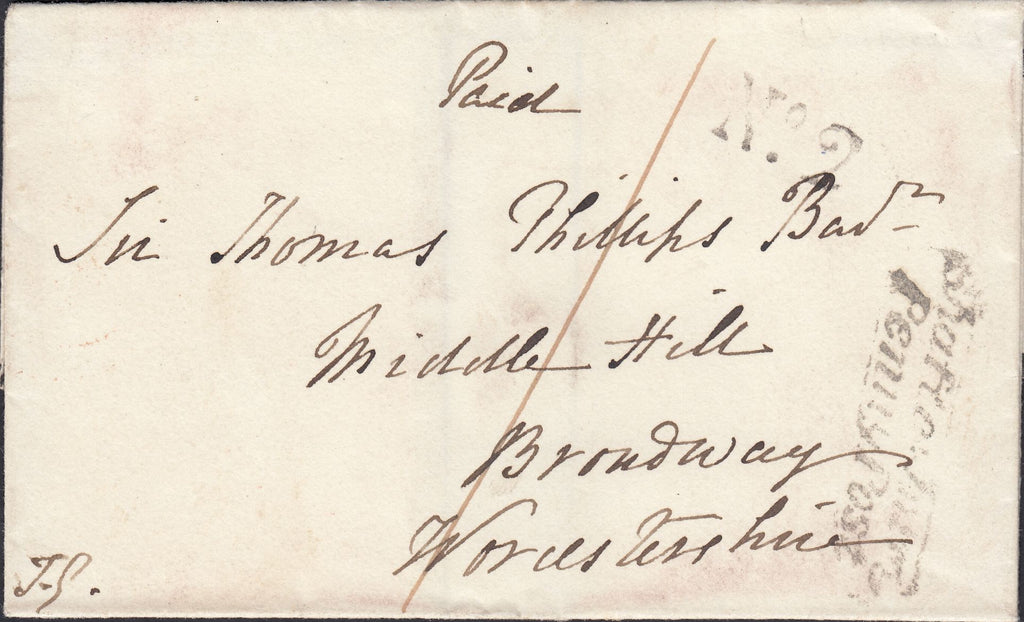 Paid
No. 2
Sir Thomas Phillips Bart
Middle Hill
Broadway
Worcestershire
Penny Post